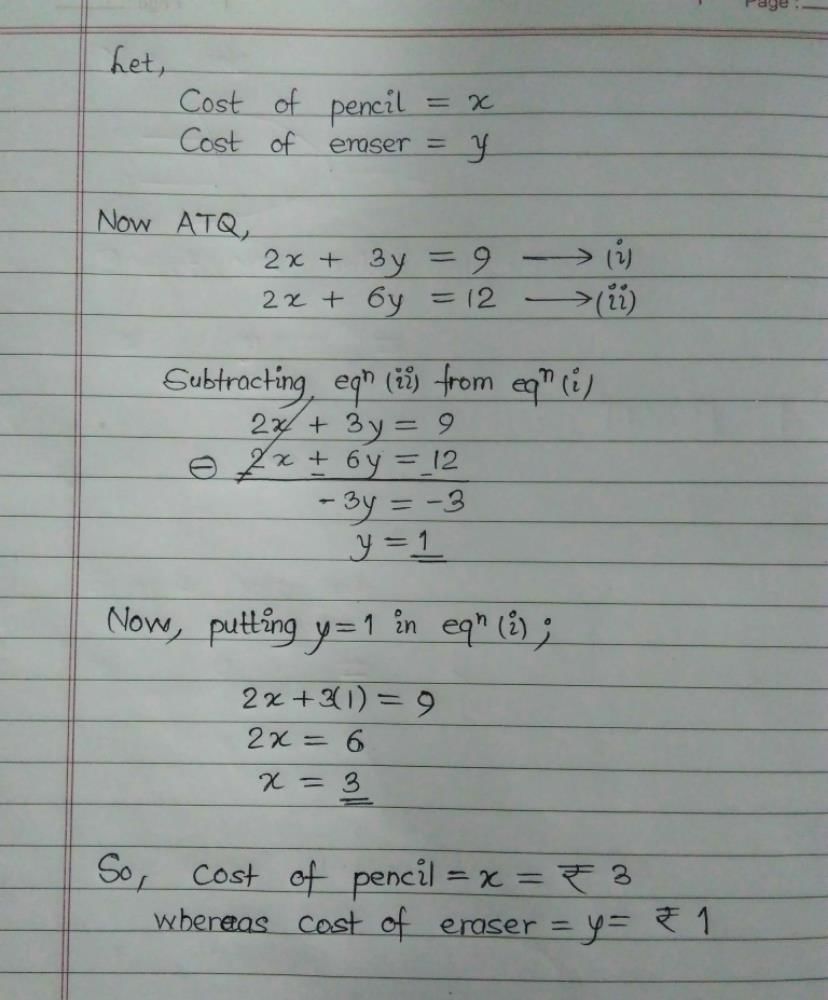 Page :
Let,
Cost of pencil = x
Cost of eraser = y
Now ATQ,
2x + 3y = 9 ⟶ (i)
2x + 6y = 12 ⟶ (ii)
Subtracting eqⁿ (ii) from eqⁿ (i)
2x + 3y = 9
⊖ 2x ± 6y = _12
-3y = -3
y = 1
Now, putting y=1 in eqⁿ (i) ;
2x + 3(1) = 9
2x = 6
x = 3
So, cost of pencil = x = ₹ 3
whereas cost of eraser = y = ₹ 1